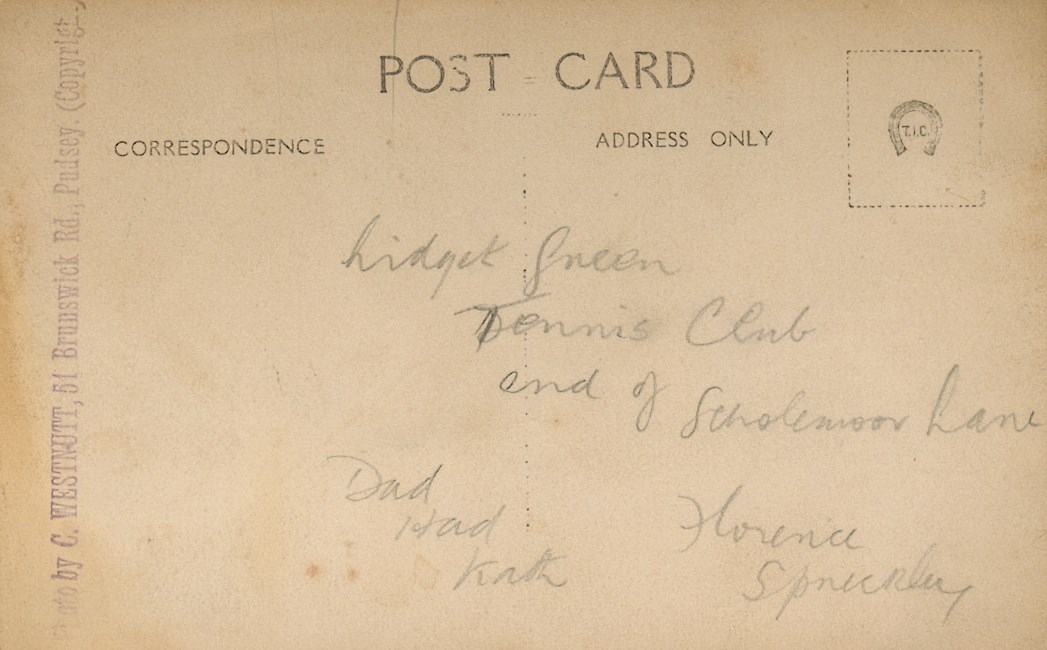 POST CARD
CORRESPONDENCE
ADDRESS ONLY
T.I.C.
Photo by C. WESTNUTT, 51 Brunswick Rd., Pudsey. (Copyright.)
Lidget Green
Tennis Club
end of Scholemoor Lane
Dad
Had
Kath
Florence
Spreckley